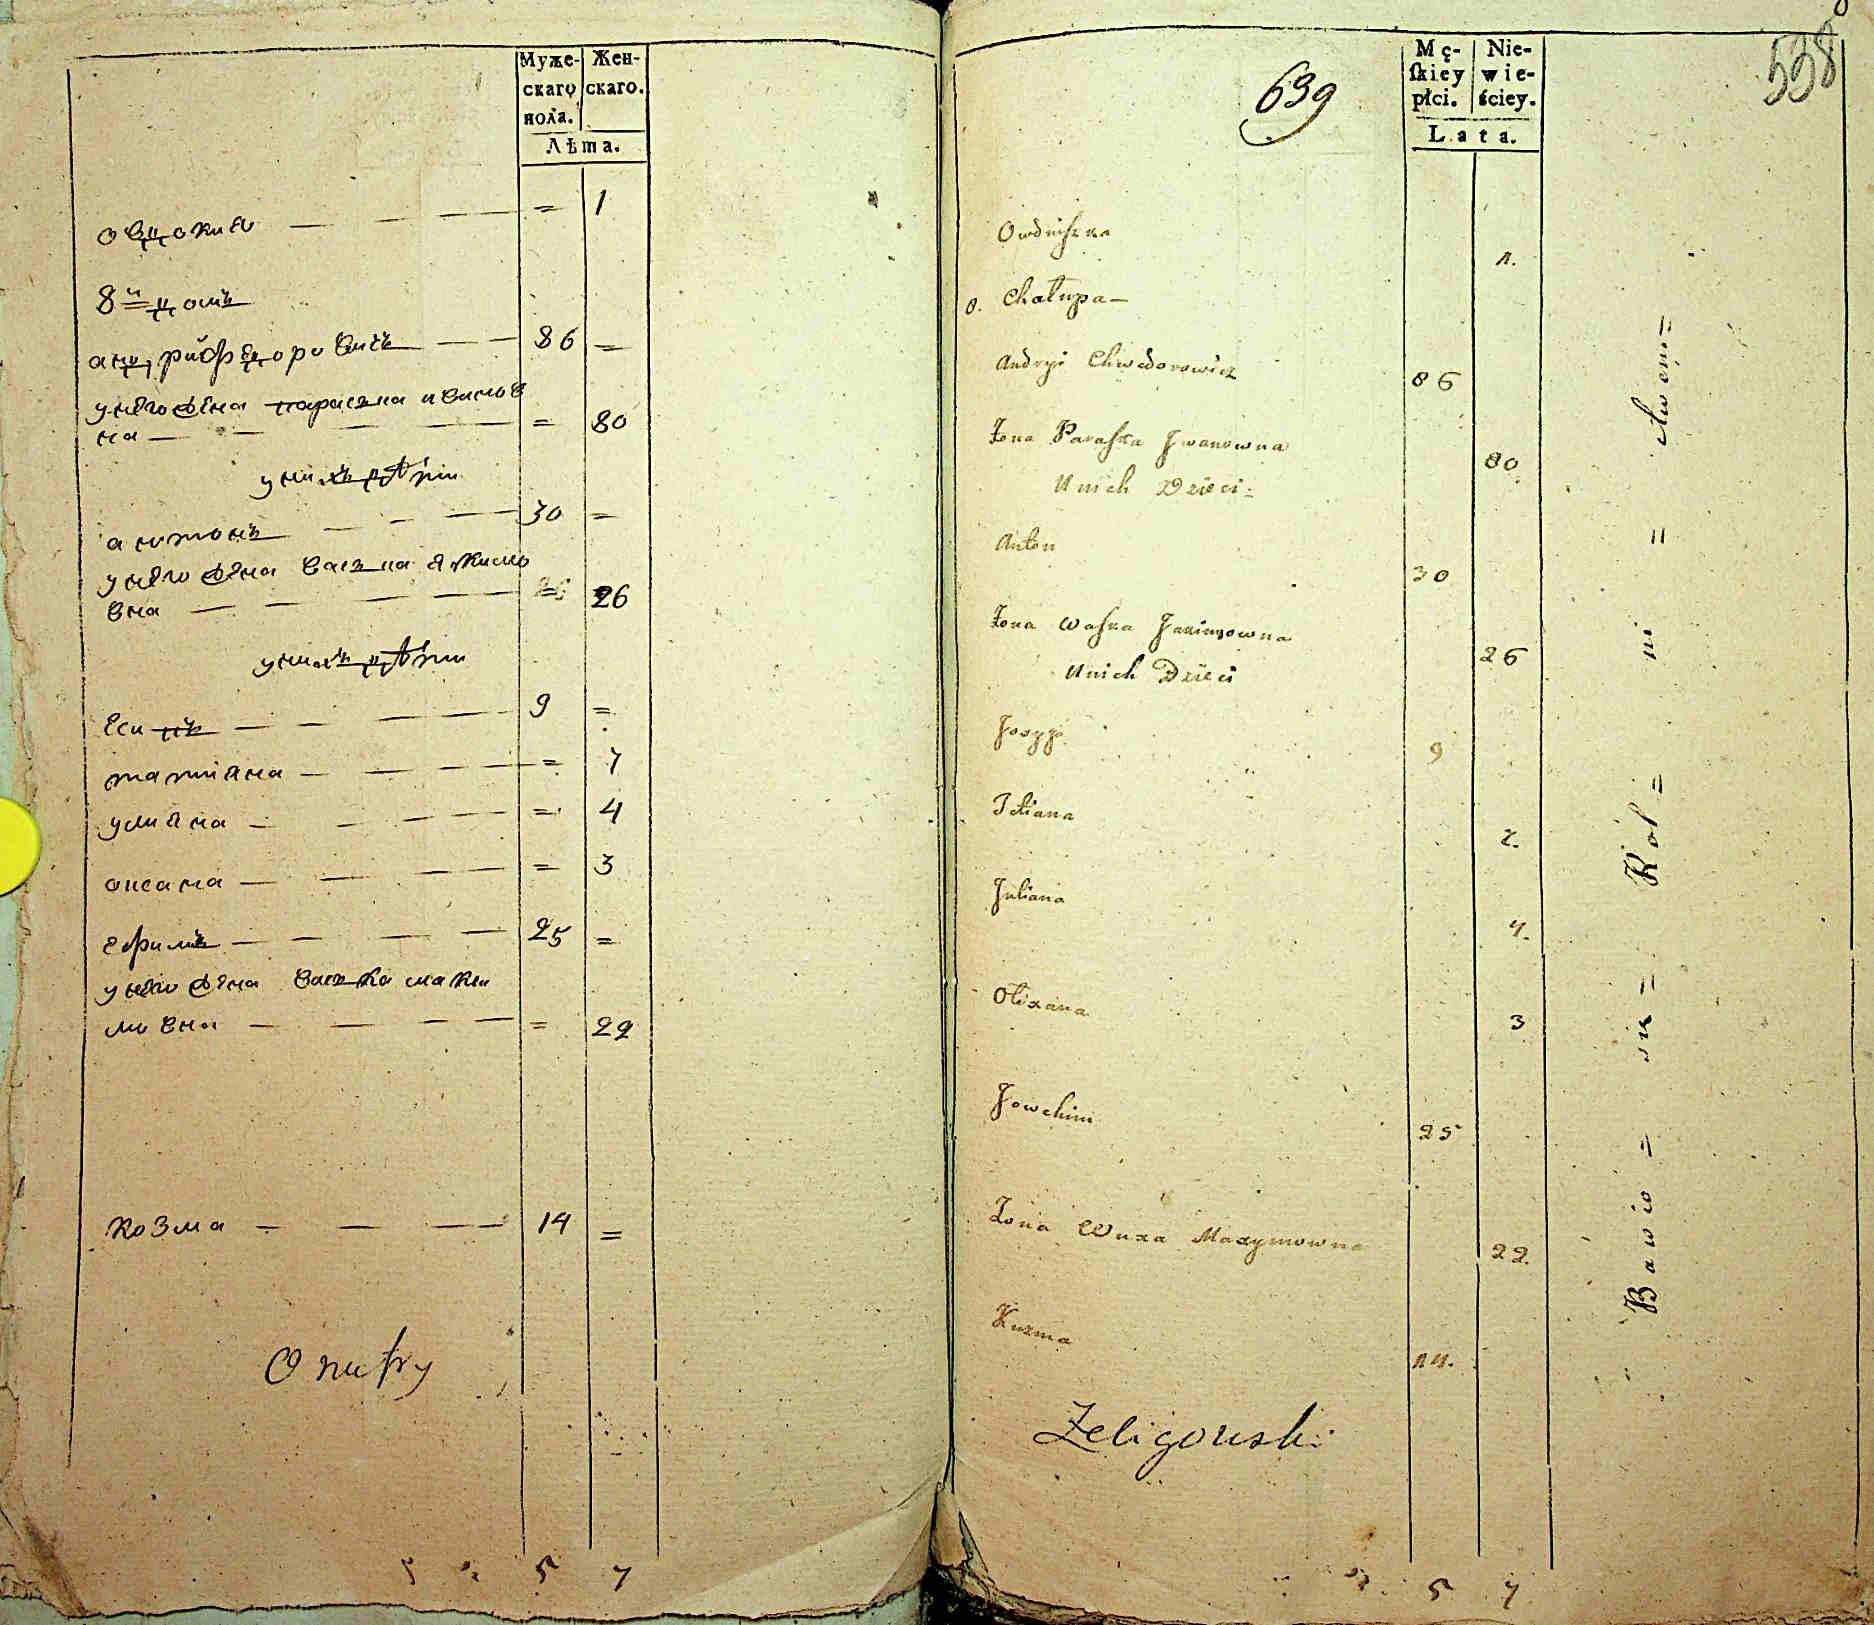 Муже-
скаго
пола.
Жен-
скаго.
Лѣта.
овдокиѧ = 1
8й домъ
андрій федоровичъ 86 =
у него жена параска иванов
на = 80
у них дѣти
антонъ 30 =
у него жена васка якимо
вна 26
у них дѣти
есипъ 9 =
татіяна = 7
улияна = 4
оксана = 3
ефимъ 25 =
у него жена васка макси
мовна = 22
козма 14 =
Onufry
5 7
538
639
Mę-
ſkiey
płci.
Nie-
wie-
ściey.
Lata.
Owdiuszka 1.
8. Chałupa
Andryi Chwedorowicz 86
Żona Paraska Jwanowna 80
U nich Dzieci
Anton 30
Żona Waska Jakimowna 26
U nich Dzieci
Josyp 9
Tatiana 7.
Juliana 4.
Olixana 3
Jowchim 25
Żona Maxymowna 22
Kuzma 14.
Żeligowski
5 7